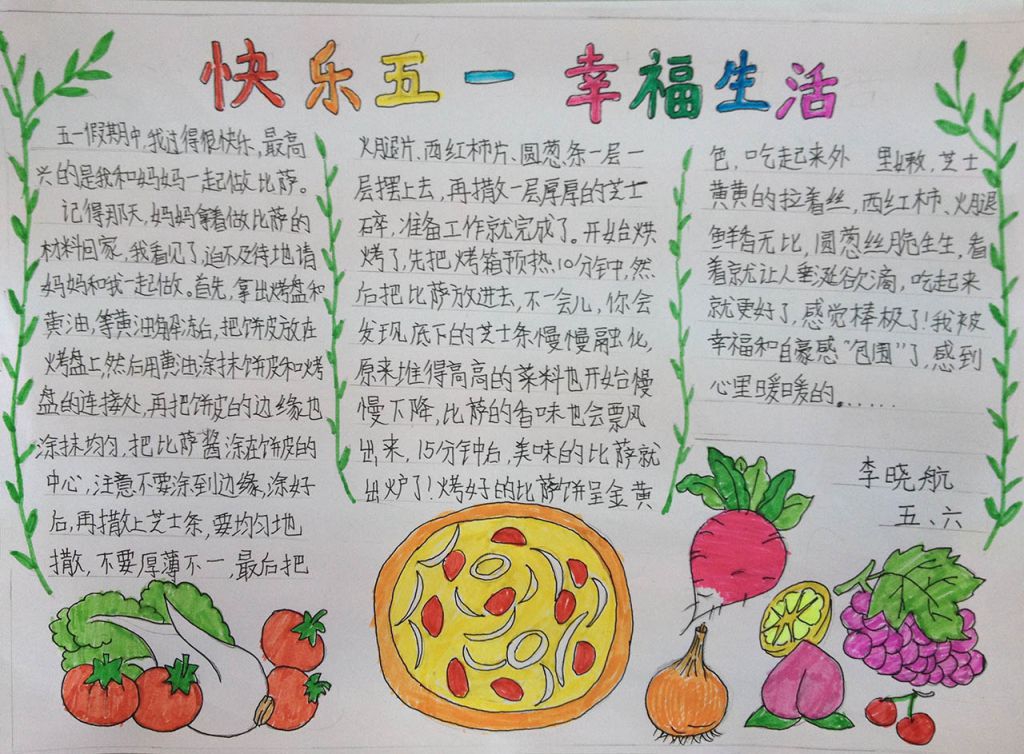 快乐五一 幸福生活
五一假期中,我过得很快乐,最高
兴的是我和妈妈一起做比萨。
记得那天,妈妈拿着做比萨的
材料回家,我看见了,迫不及待地请
妈妈和我一起做。首先,拿出烤盘和
黄油,等黄油解冻后,把饼皮放在
烤盘上,然后用黄油涂抹饼皮和烤
盘的连接处,再把饼皮的边缘也
涂抹均匀,把比萨酱涂在饼皮的
中心,注意不要涂到边缘,涂好
后,再撒上芝士条,要均匀地
撒,不要厚薄不一,最后把
火腿片、西红柿片、圆葱条一层一
层摆上去,再撒一层厚厚的芝士
碎,准备工作就完成了。开始烘
烤了,先把烤箱预热10分钟,然
后把比萨放进去,不一会儿,你会
发现底下的芝士条慢慢融化,
原来堆得高高的菜料也开始慢
慢下降,比萨的香味也会飘
出来,15分钟后,美味的比萨就
出炉了!烤好的比萨饼呈金黄
色,吃起来外 里嫩,芝士
黄黄的拉着丝,西红柿、火腿
鲜香无比,圆葱丝脆生生,看
着就让人垂涎欲滴,吃起来
就更好了,感觉棒极了!我被
幸福和自豪感“包围”了,感到
心里暖暖的。.....
李晓航
五、六